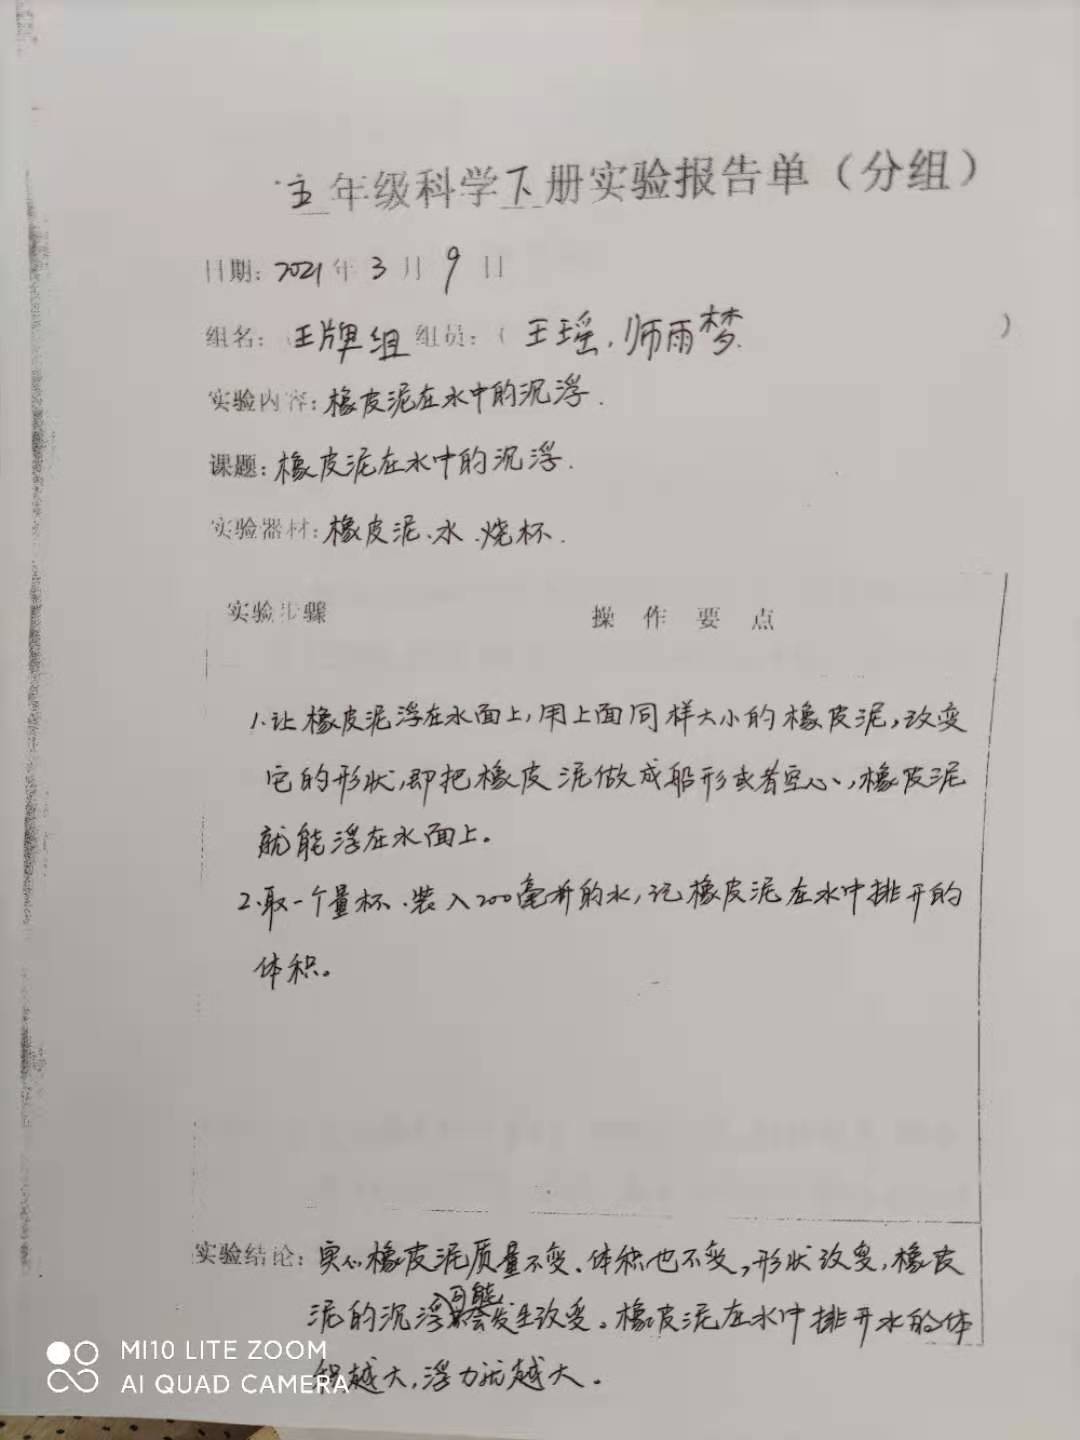 五年级科学下册实验报告单（分组）
日期: 2021年3月9日
组名:（王牌组 组员:（王瑶.师雨梦. ）
实验内容:橡皮泥在水中的沉浮.
课题:橡皮泥在水中的沉浮.
实验器材:橡皮泥、水、烧杯.
实验步骤 操作要点
1.让橡皮泥浮在水面上,用上面同样大小的橡皮泥,改变
它的形状,即把橡皮泥做成船形或者空心、,橡皮泥
就能浮在水面上。
2.取一个量杯.装入200毫升的水,记橡皮泥在水中排开的
体积。
实验结论:实心橡皮泥质量不变、体积也不变,形状改变,橡皮
泥的沉浮可能会发生改变。橡皮泥在水中排开水的体
积越大,浮力就越大.
MI10 LITE ZOOM
AI QUAD CAMERA